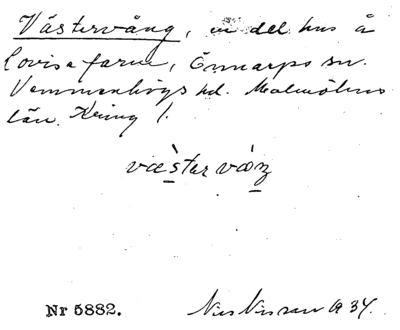 Västervång, en del hus å
Lovisa farm, Önnarps sn.
Vemmenhögs hd. Malmöhus
län.
væ̀stər vȧŋ
Nr 5882. Nils Nilsson 1934.